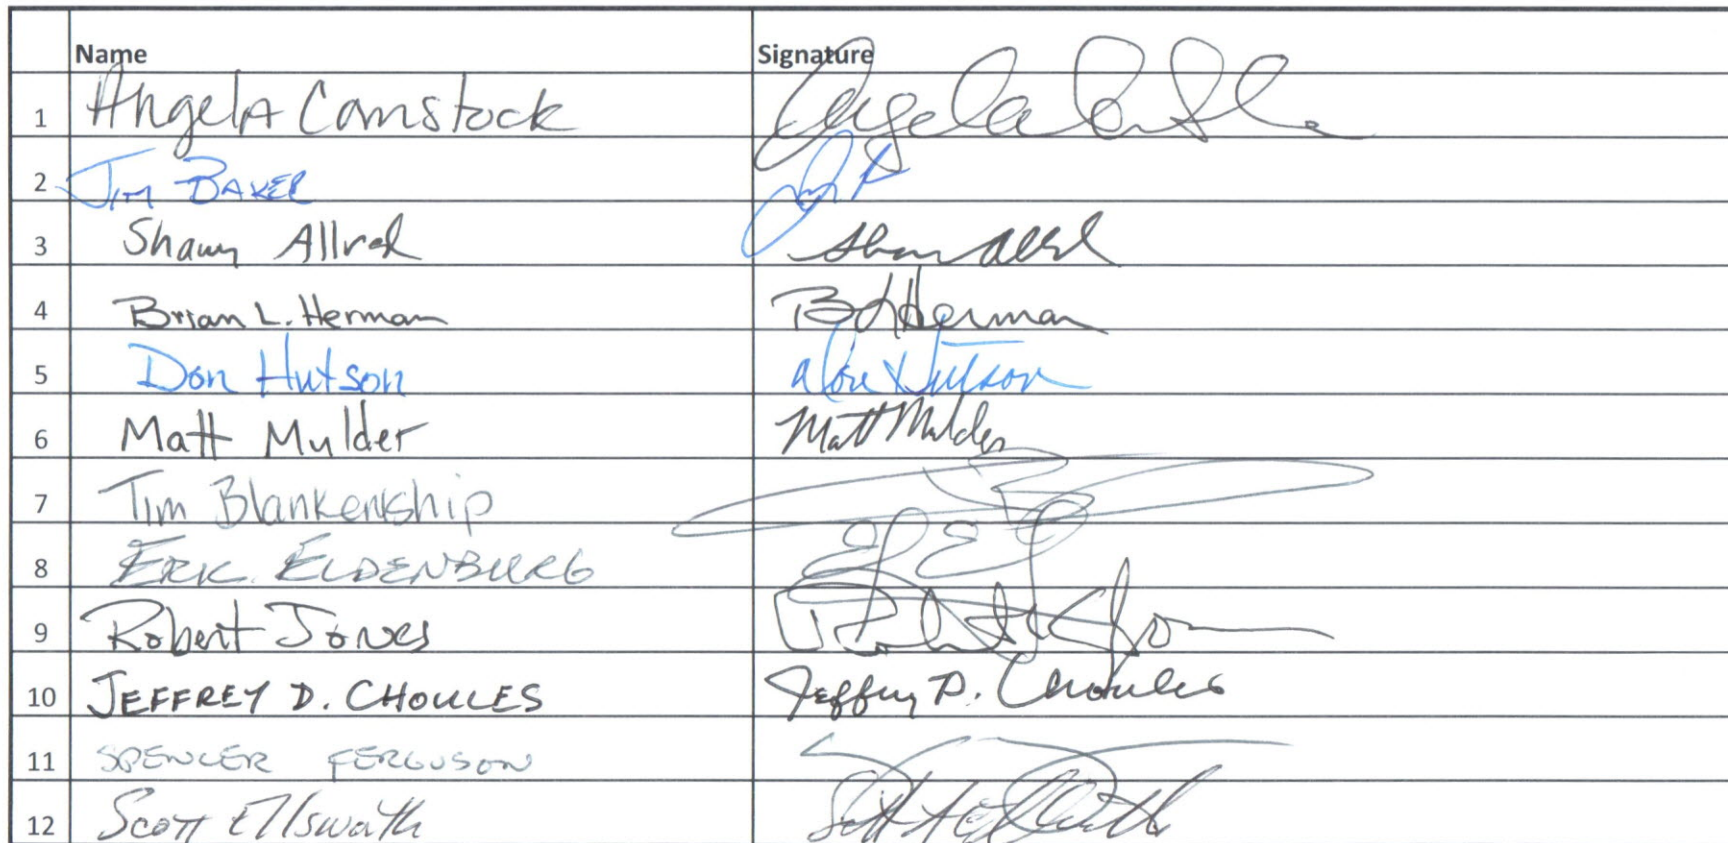 Name Signature
1 Angela Comstock Angela
2 Jim Baker
3 Shawn Allred
4 Brian L. Herman B L Herman
5 Don Hutson Don Hutson
6 Matt Mulder Matt Mulder
7 Tim Blankenship
8 ERIC ELDENBURG
9 Robert Jones Robert
10 JEFFREY D. CHOULES Jeffrey D. Choules
11 SPENCER FERGUSON
12 Scott Ellsworth